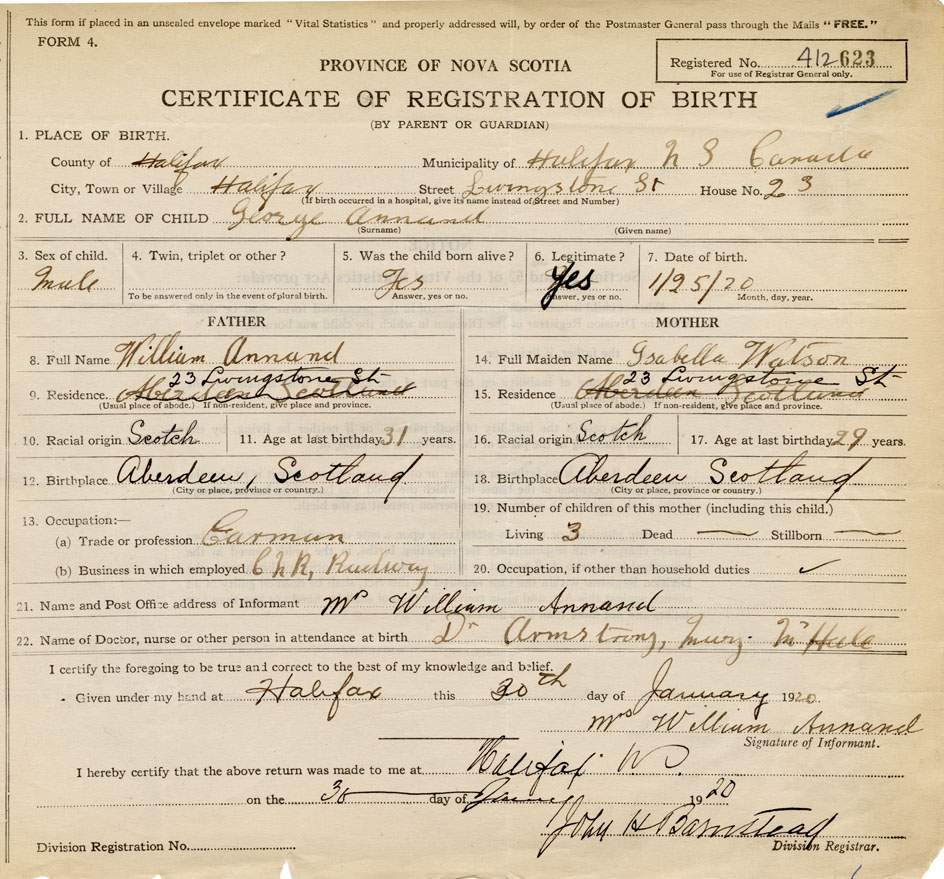 This form if placed in an unsealed envelope marked "Vital Statistics" and properly addressed will, by order of the Postmaster General pass through the Mails "FREE."
FORM 4.
Registered No. 412623
For use of Registrar General only.
PROVINCE OF NOVA SCOTIA
CERTIFICATE OF REGISTRATION OF BIRTH
(BY PARENT OR GUARDIAN)
1. PLACE OF BIRTH.
County of Halifax Municipality of Halifax, N S Canada
City, Town or Village Halifax Street Livingstone St House No. 23
(If birth occurred in a hospital, give its name instead of Street and Number)
2. FULL NAME OF CHILD George Annand
(Surname) (Given name)
3. Sex of child. 4. Twin, triplet or other? 5. Was the child born alive? 6. Legitimate? 7. Date of birth.
Male Yes Yes 1/25/20
To be answered only in the event of plural birth. Answer, yes or no. Answer, yes or no. Month, day, year.
FATHER MOTHER
8. Full Name William Annand 14. Full Maiden Name Isabella Watson
23 Livingstone St 23 Livingstone St
9. Residence Aberdeen Scotland 15. Residence Aberdeen Scotland
(Usual place of abode.) If non-resident, give place and province. (Usual place of abode.) If non-resident, give place and province.
10. Racial origin Scotch 11. Age at last birthday 31 years. 16. Racial origin Scotch 17. Age at last birthday 29 years.
12. Birthplace Aberdeen, Scotland 18. Birthplace Aberdeen Scotland
(City or place, province or country.) (City or place, province or country.)
13. Occupation:— 19. Number of children of this mother (including this child.)
(a) Trade or profession Carman Living 3 Dead — Stillborn —
(b) Business in which employed C N R, Railway 20. Occupation, if other than household duties ✓
21. Name and Post Office address of Informant Mrs William Annand
22. Name of Doctor, nurse or other person in attendance at birth Dr Armstrong,
I certify the foregoing to be true and correct to the best of my knowledge and belief.
Given under my hand at Halifax this 30th day of January 1920
Mrs William Annand
Signature of Informant.
I hereby certify that the above return was made to me at Halifax
on the 30 day of 1920
John H Barnstead
Division Registration No. Division Registrar.